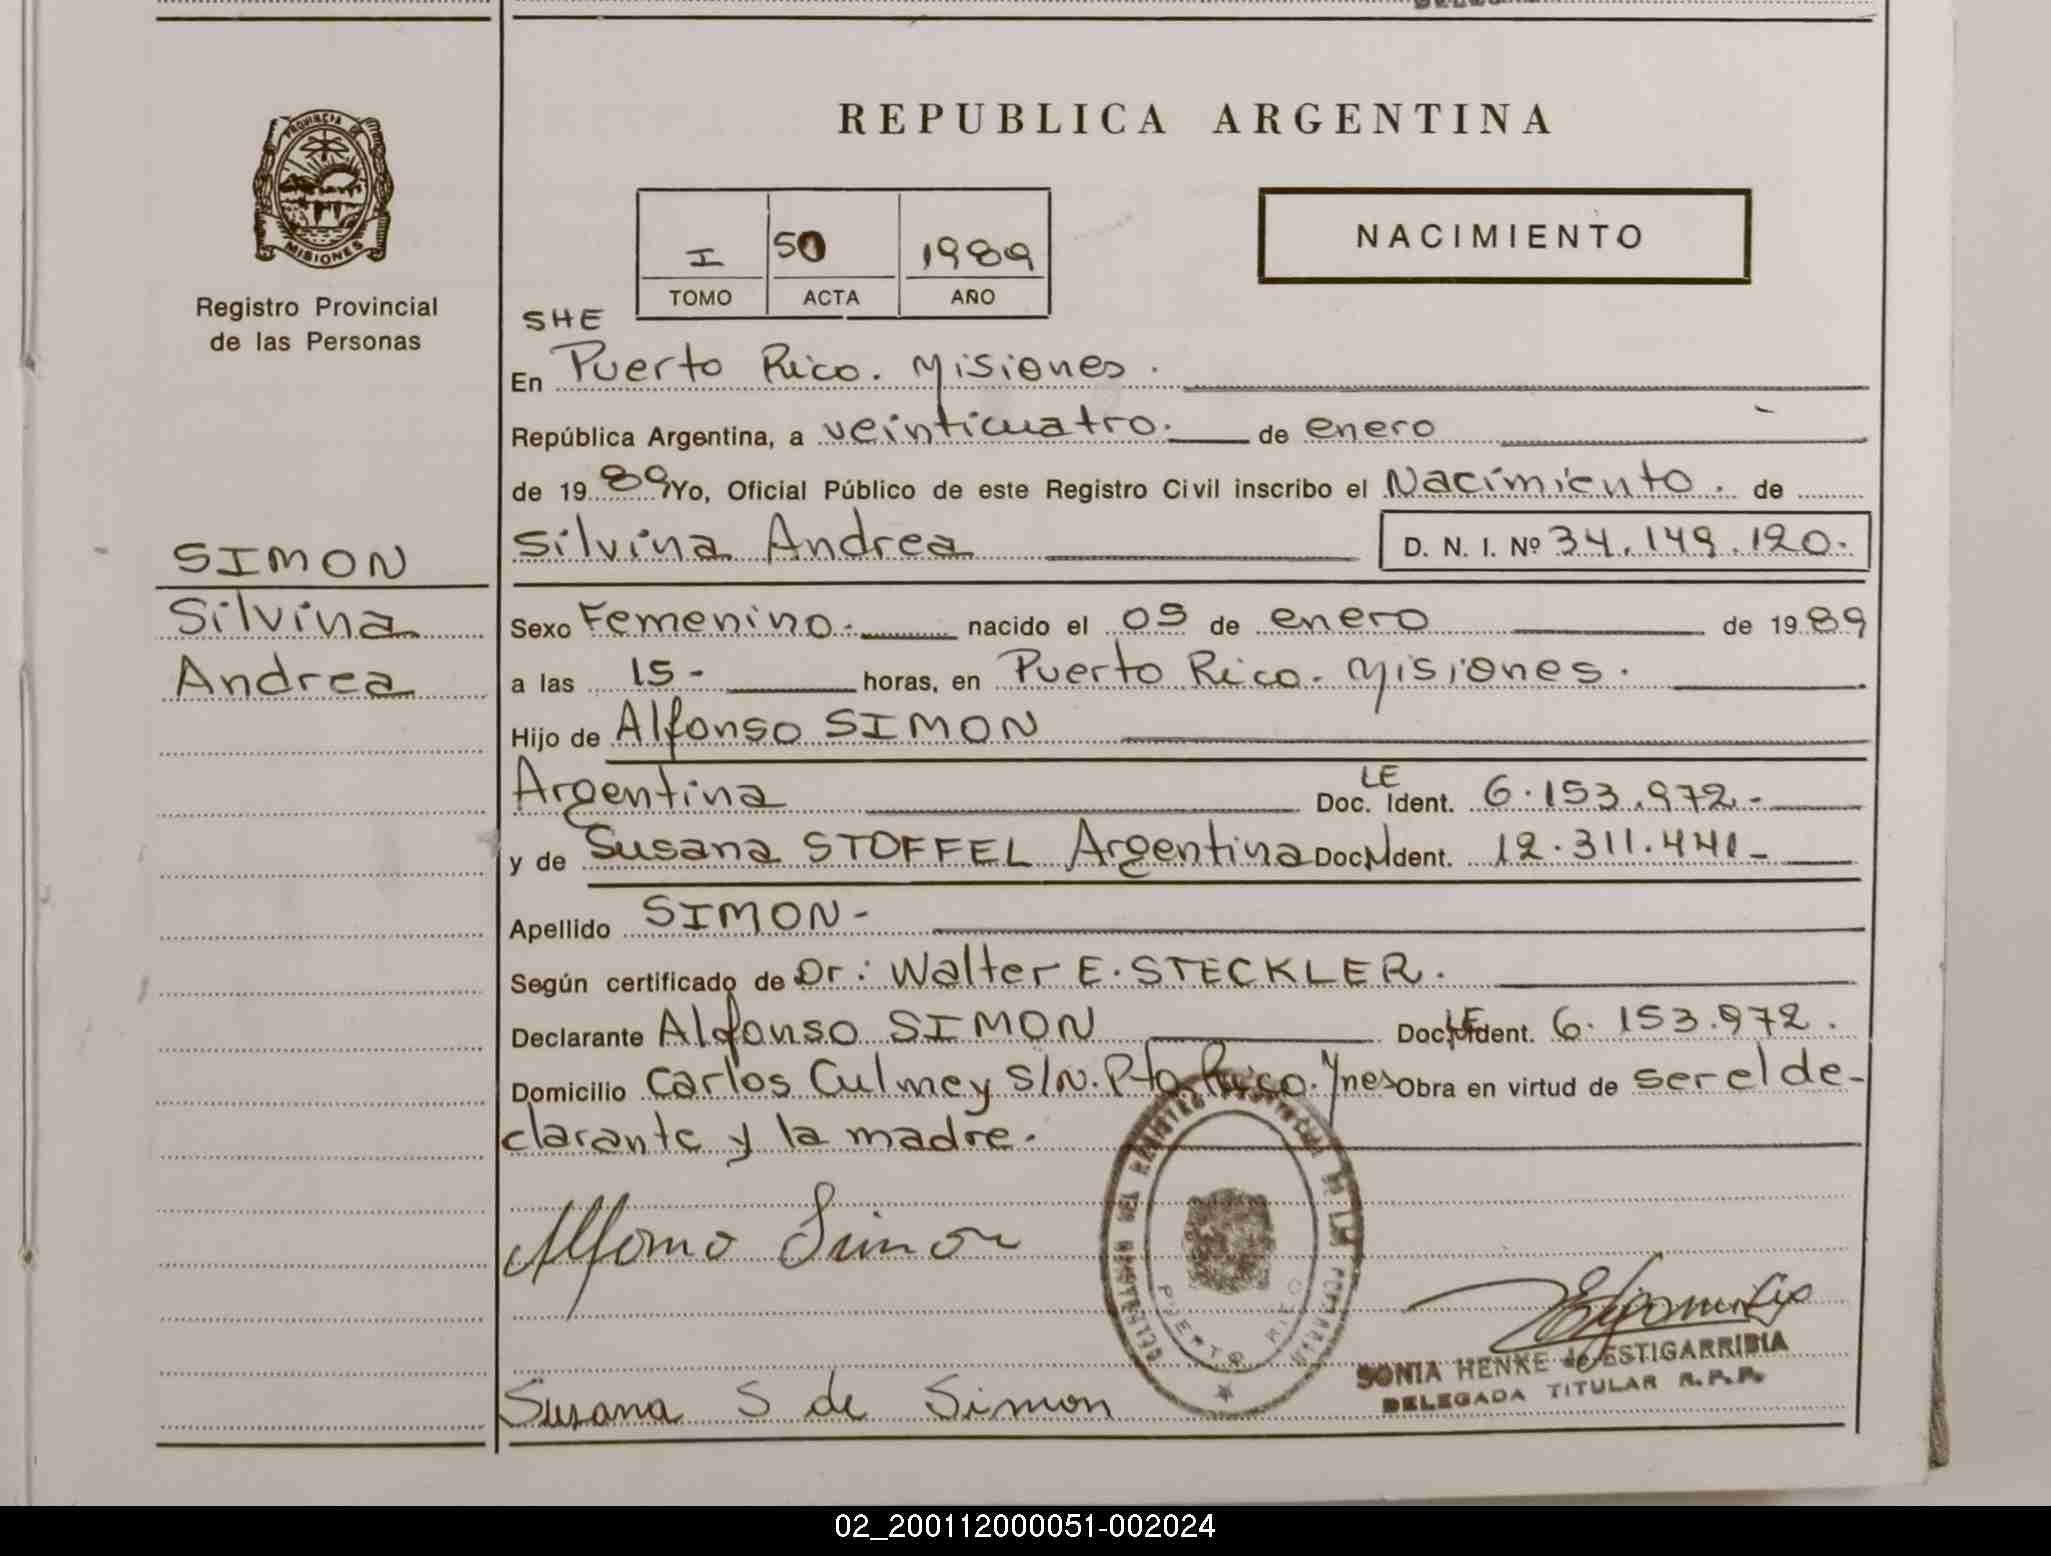 REPUBLICA ARGENTINA
PROVINCIA DE
MISIONES
Registro Provincial
de las Personas
I 50 1989
TOMO ACTA AÑO
NACIMIENTO
SHE
En Puerto Rico. Misiones.
República Argentina, a veinticuatro. de enero
de 1989 Yo, Oficial Público de este Registro Civil inscribo el Nacimiento. de
Silvina Andrea D. N. I. Nº 34.149.120.
SIMON
Silvina
Andrea
Sexo Femenino. nacido el 09 de enero de 1989
a las 15- horas, en Puerto Rico. Misiones.
Hijo de Alfonso SIMON
Argentina Doc. LE Ident. 6.153.972.-
y de Susana STOFFEL Argentina Doc. Ident. 12.311.441-
Apellido SIMON-
Según certificado de Dr: Walter E. STECKLER.
Declarante Alfonso SIMON Doc. LE Ident. 6.153.972.
Domicilio Carlos Culmey S/N. Pto Rico. Mnes Obra en virtud de ser el de-
clarante y la madre.
Alfonso Simon
PUERTO RICO
SONIA HENKE de ESTIGARRIBIA
DELEGADA TITULAR R.P.P.
Susana S de Simon
02_200112000051-002024